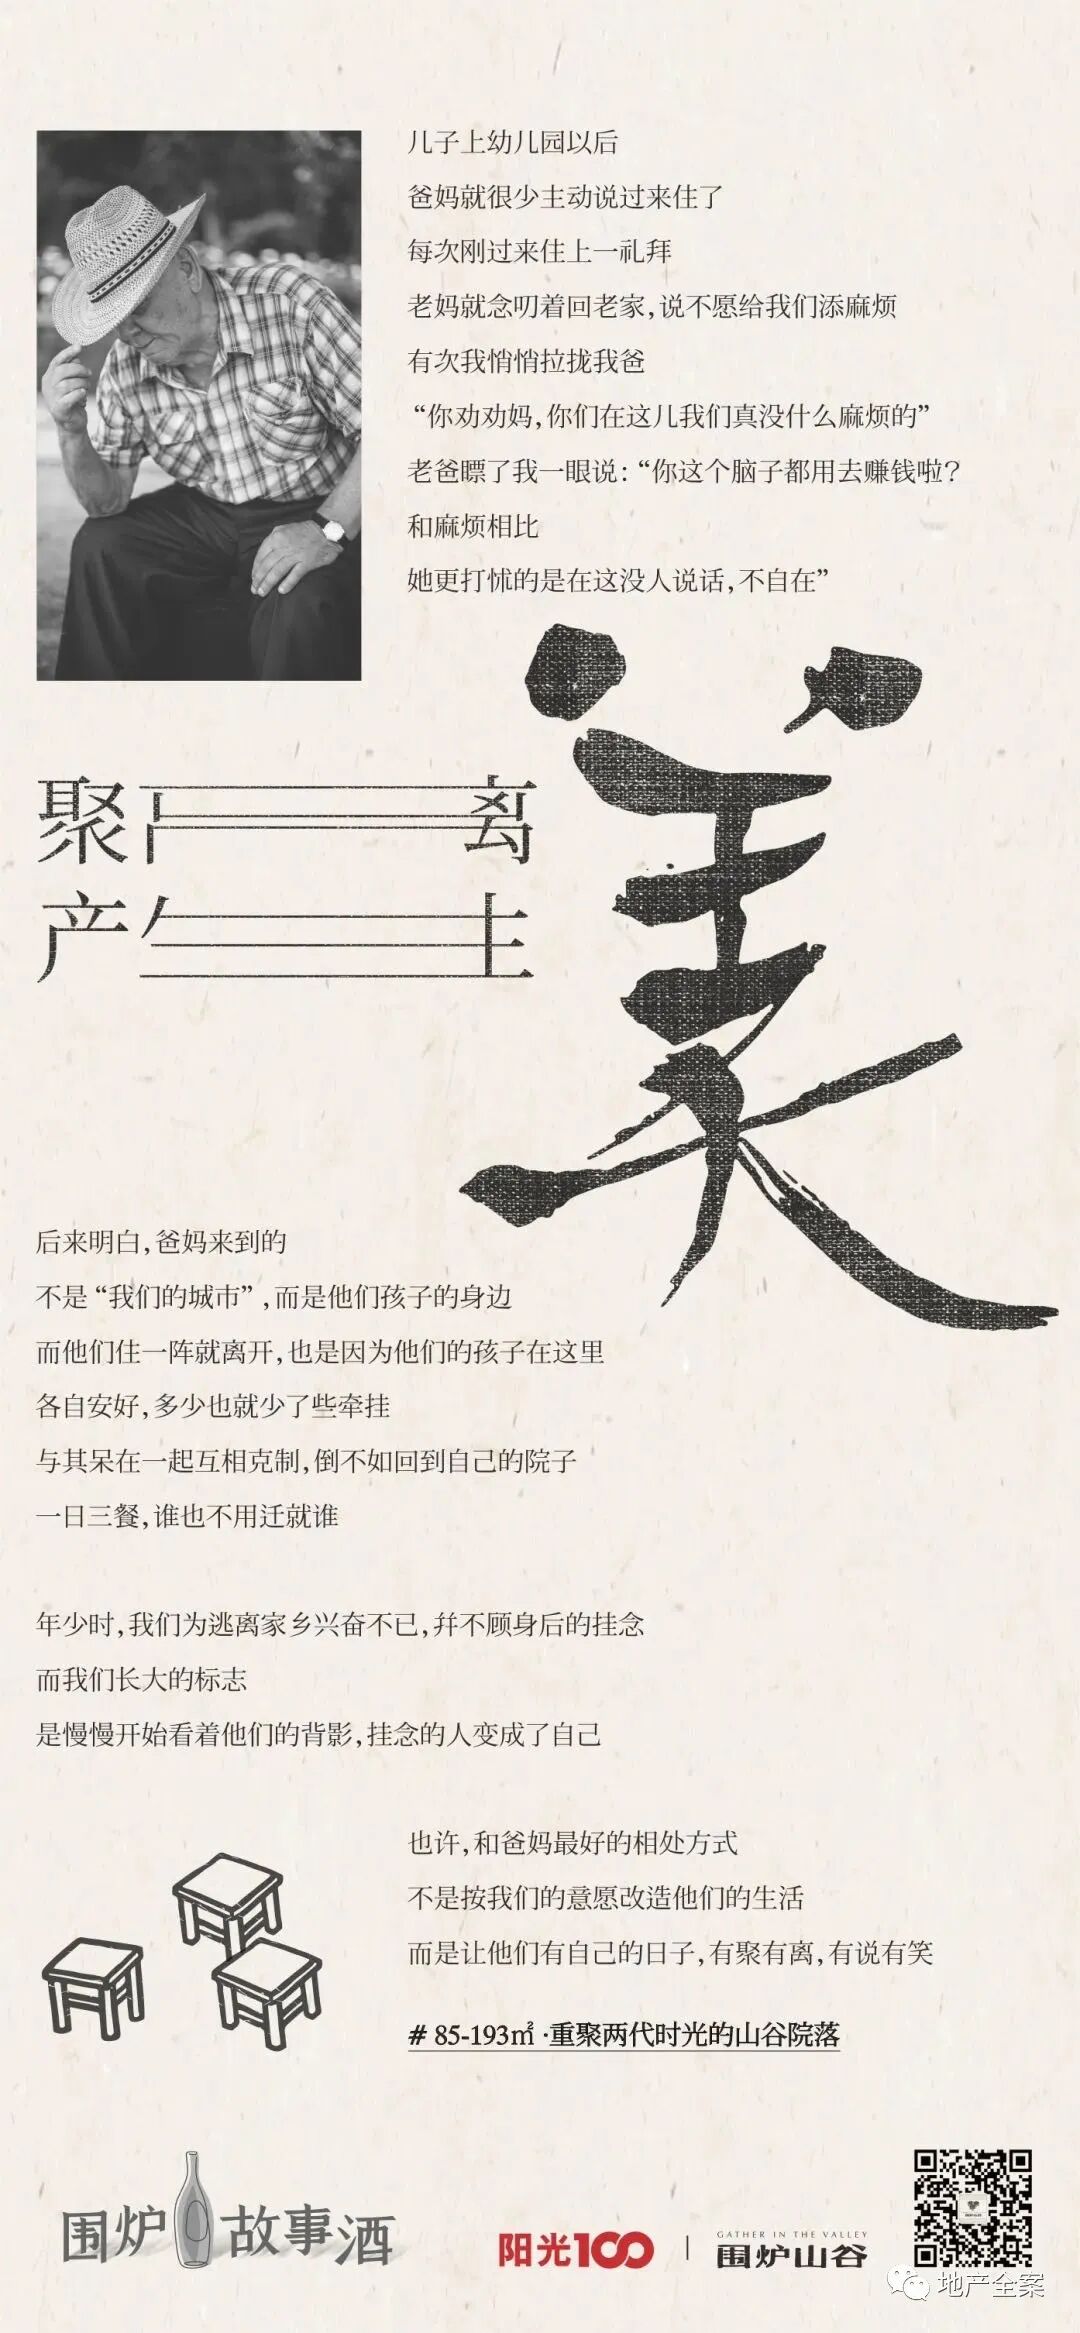 儿子上幼儿园以后
爸妈就很少主动说过来住了
每次刚过来住上一礼拜
老妈就念叨着回老家，说不愿给我们添麻烦
有次我悄悄拉拢我爸
“你劝劝妈，你们在这儿我们真没什么麻烦的”
老爸瞟了我一眼说：“你这个脑子都用去赚钱啦？
和麻烦相比
她更打怵的是在这没人说话，不自在”
聚 离
产生
美
后来明白，爸妈来到的
不是“我们的城市”，而是他们孩子的身边
而他们住一阵就离开，也是因为他们的孩子在这里
各自安好，多少也就少了些牵挂
与其呆在一起互相克制，倒不如回到自己的院子
一日三餐，谁也不用迁就谁
年少时，我们为逃离家乡兴奋不已，并不顾身后的挂念
而我们长大的标志
是慢慢开始看着他们的背影，挂念的人变成了自己
也许，和爸妈最好的相处方式
不是按我们的意愿改造他们的生活
而是让他们有自己的日子，有聚有离，有说有笑
# 85-193㎡·重聚两代时光的山谷院落
围炉故事酒
阳光100 | GATHER IN THE VALLEY
围炉山谷
地产全案